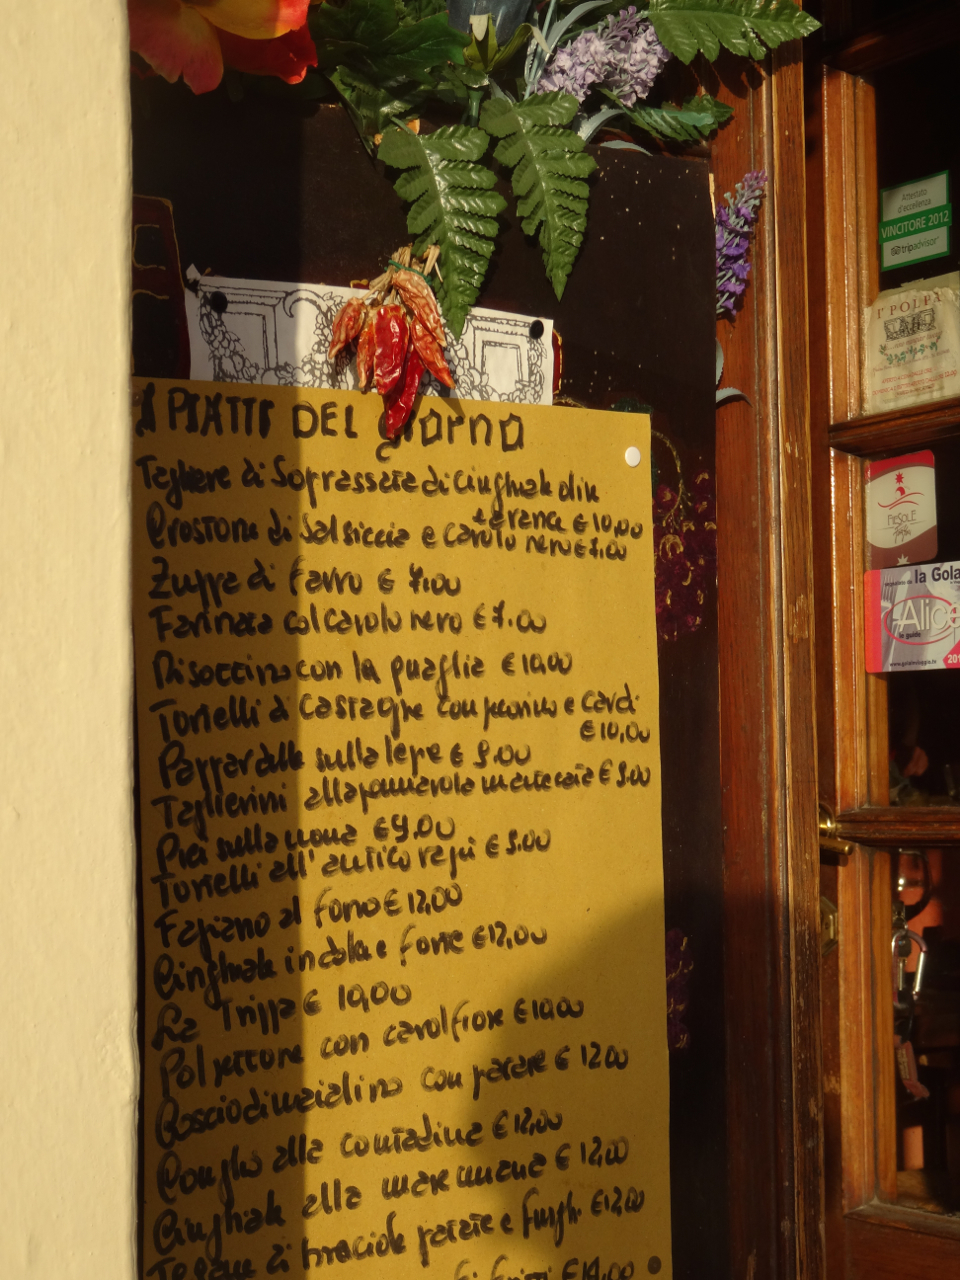 I PIATTI DEL GIORNO
Tagliere di Soprassata di Cinghiale di
€ 10,00
Crostone di Salsiccia e cavolo nero € 7,00
Zuppa di farro € 7,00
Farinata col cavolo nero € 7.00
Risottino con la quaglia € 10,00
Tortelli di Castagne con pecorino e cardi
€ 10,00
Pappardelle sulla lepre € 9.00
Taglierini alla € 9,00
Pici sulla nana € 9,00
Tortelli all'antico ragù € 9.00
Fagiano al forno € 12,00
Cinghiale in dolce e forte € 12,00
La Trippa € 10,00
Polpettone con cavolfiore € 10,00
Coscio di maialino con patate € 12,00
Coniglio alla contadina € 12,00
Cinghiale alla maremmana € 12,00
Tegame di braciole patate e funghi € 12,00
fritti € 14,00
Attestato
d'eccellenza
VINCITORE 2012
tripadvisor
I' POLPA
FIESOLE
la Gola
Alice
le guide
201